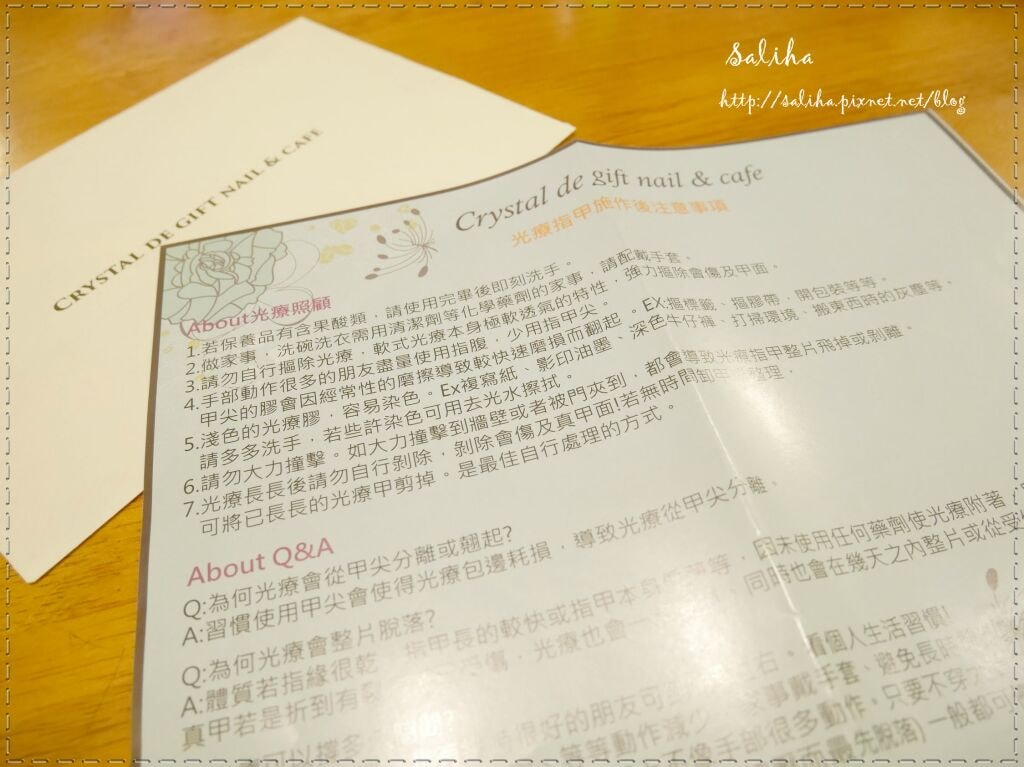 Saliha
http://saliha.pixnet.net/blog
CRYSTAL DE GIFT NAIL & CAFE
Crystal de gift nail & cafe
光療指甲施作後注意事項
About光療照顧
1.若保養品有含果酸類，請使用完畢後即刻洗手。
2.做家事，洗碗洗衣需用清潔劑等化學藥劑的家事，請配戴手套。
3.請勿自行摳除光療，軟式光療本身極軟透氣的特性，強力摳除會傷及甲面。
4.手部動作很多的朋友盡量使用指腹，少用指甲尖。
甲尖的膠會因經常性的磨擦導致較快速磨損而翻起。EX:摳標籤、摳膠帶，開包裝等等。
5.淺色的光療膠，容易染色。Ex複寫紙、影印油墨、深色牛仔褲、打掃環境、搬東西時的灰塵等，
請多多洗手，若些許染色可用去光水擦拭。
6.請勿大力撞擊。如大力撞擊到牆壁或者被門夾到，都會導致光療指甲整片飛掉或剝離。
7.光療長長後請勿自行剝除，剝除會傷及真甲面!若無時間卸甲整理，
可將已長長的光療甲剪掉。是最佳自行處理的方式。
About Q&A
Q:為何光療會從甲尖分離或翹起?
A:習慣使用甲尖會使得光療包邊耗損，導致光療從甲尖分離。
Q:為何光療會整片脫落?
A:體質若指緣很乾，指甲長的較快或指甲本身 等，因未使用任何藥劑使光療附著，
真甲若是折到有裂 受傷，光療也會一 同時也會在幾天之內整片或從受
可以撐多 右。看個人生活習慣!
很好的朋友可 家事戴手套、避免長時
等等動作減少 不像手部很多動作，只要不穿
最先脫落)一般都可